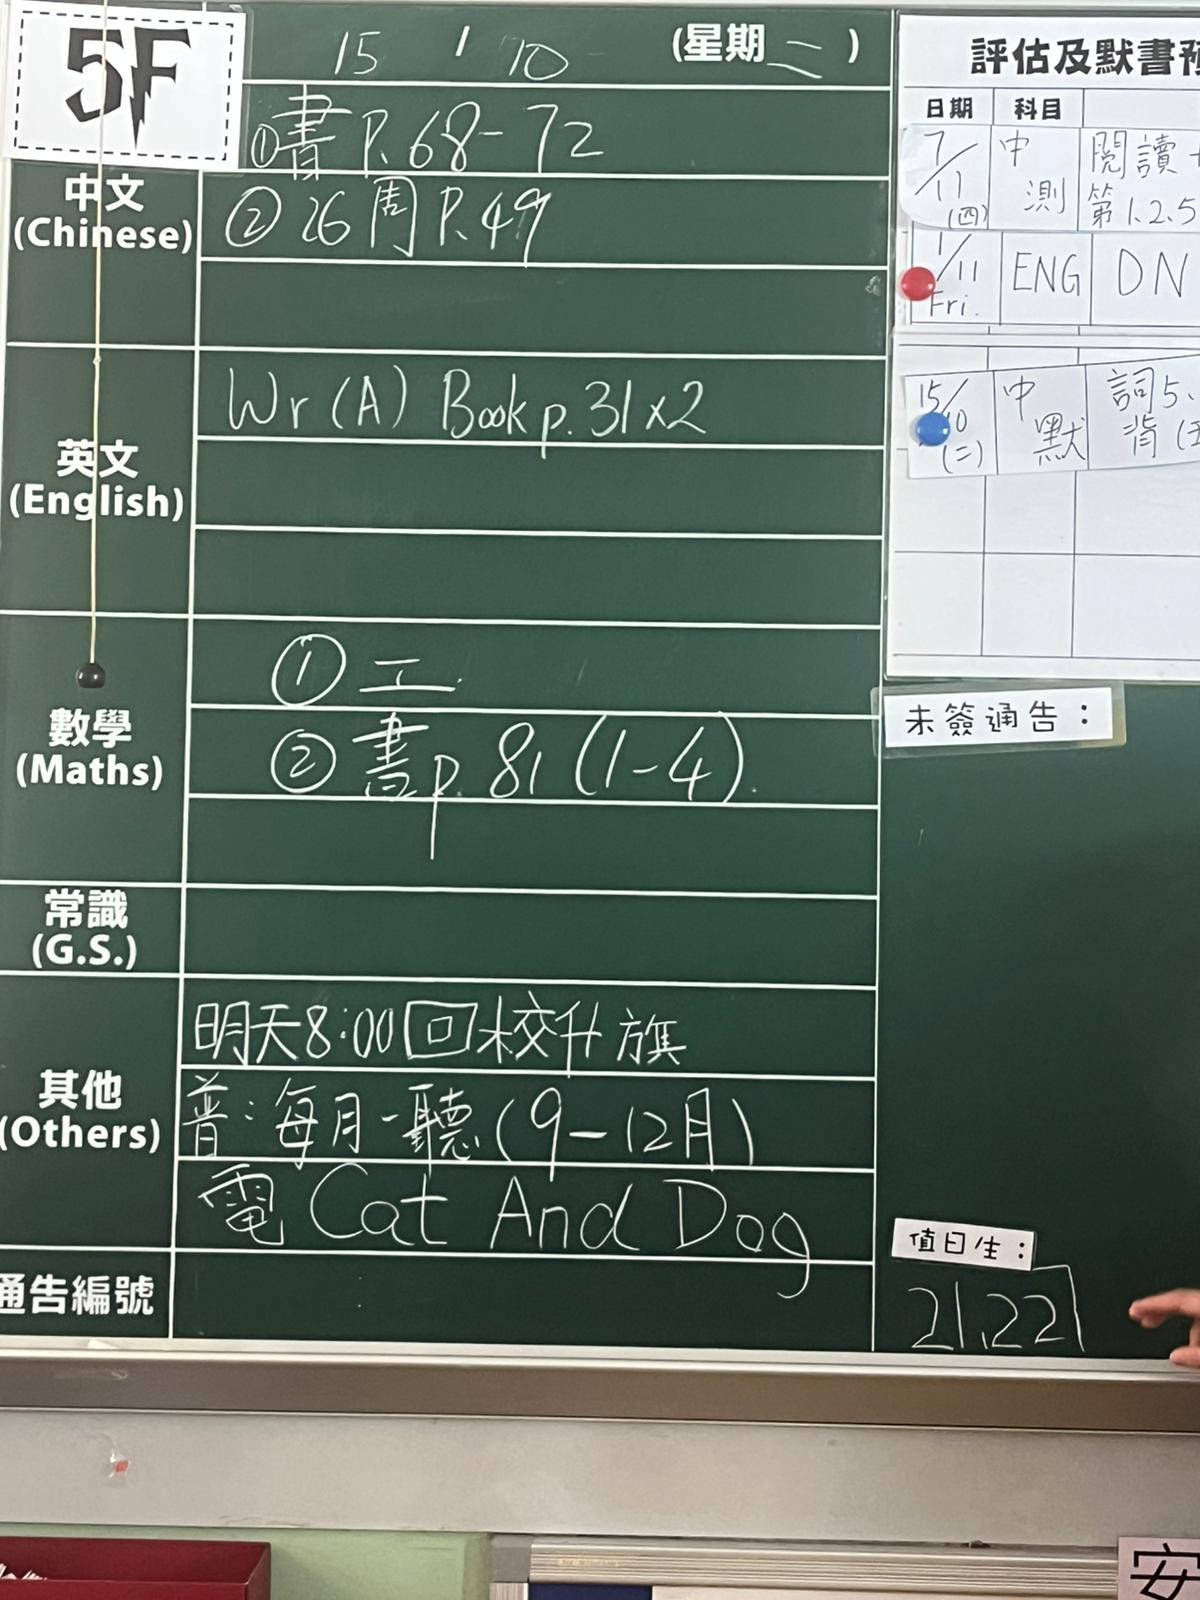 5F
15 / 10 (星期二)
中文
(Chinese)
①書 P.68-72
② 26周 P.49
英文
(English)
Wr (A) Book p.31x2
數學
(Maths)
① 工
② 書p.81 (1-4).
常識
(G.S.)
其他
(Others)
明天8:00回校升旗
普:每月一聽(9-12月)
電 Cat And Dog
通告編號
評估及默書預
日期 科目
7/11 (四) 中測 閱讀
第1.2.5
1/11 Fri. ENG DN
15/10 (二) 中默 詞5、
背
未簽通告：
值日生：
21,22
安